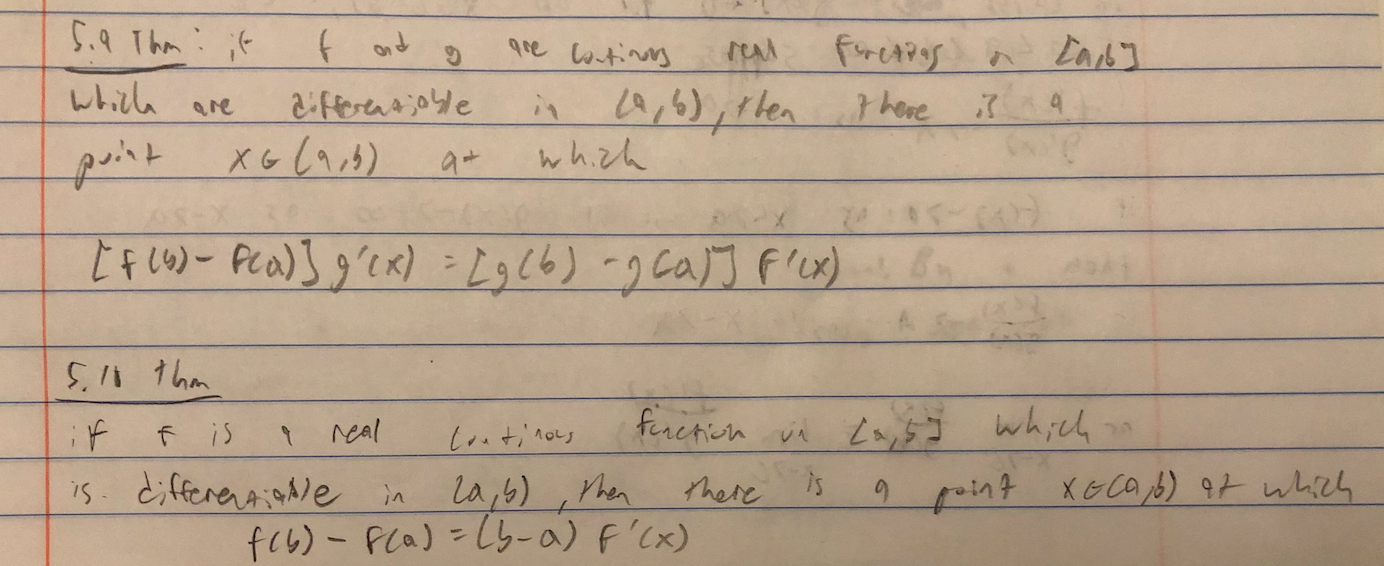 5.9 Thm: if f and g are continous real functions on [a,b]
which are differentiable in (a,b), then there is a
point x∈(a,b) at which
[f(b)-f(a)]g'(x) = [g(b)-g(a)] f'(x)
5.10 thm
if f is a real continous function on [a,b] which
is differentiable in (a,b), then there is a point x∈(a,b) at which
f(b)-f(a)=(b-a) f'(x)